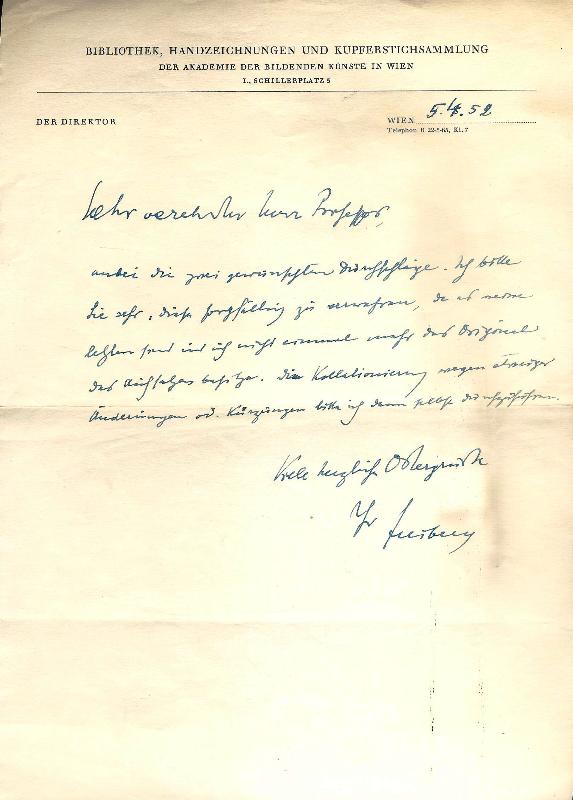 BIBLIOTHEK, HANDZEICHNUNGEN UND KUPFERSTICHSAMMLUNG
DER AKADEMIE DER BILDENDEN KÜNSTE IN WIEN
I., SCHILLERPLATZ 3
DER DIREKTOR
WIEN 5.4.52
Telephon B 22-5-65, Kl. 7
Sehr verehrter Herr Professor,
anbei die zwei gewünschten Durchschläge. Ich bitte
Sie sehr, diese sorgfältig zu verwahren, da es meine
letzten sind und ich nicht einmal mehr das Original
des Aufsatzes besitze. Die Kollationierung wegen etwaiger
Änderungen od. Kürzungen bitte ich dann selbst durchzuführen.
Viele herzliche Ostergrüße
Ihr